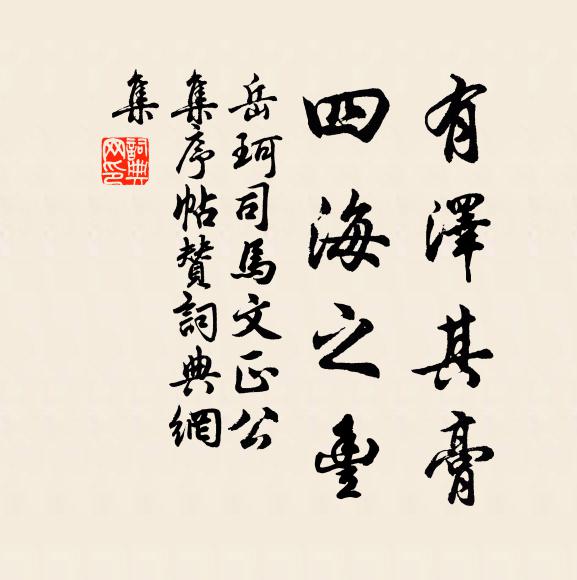 有澤其膏
四海之豊
岳珂司馬文正公
集序帖贊詞典網
集
詞典網印